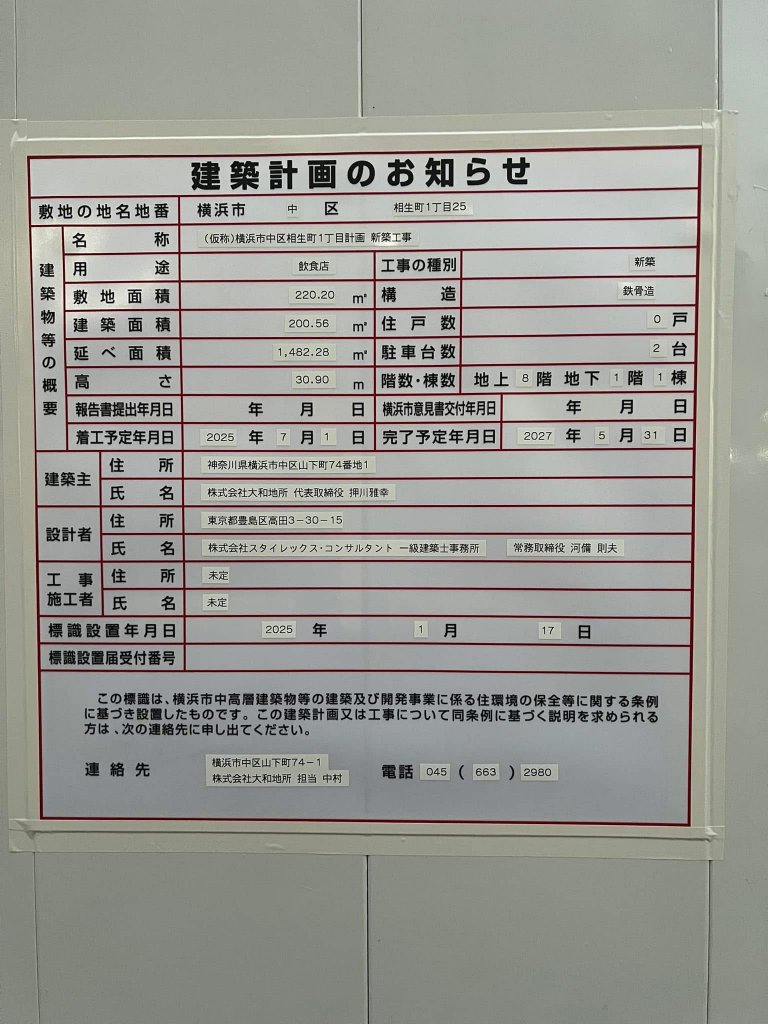 建築計画のお知らせ
敷地の地名地番 横浜市 中 区 相生町1丁目25
建築物等の概要
名称 (仮称)横浜市中区相生町1丁目計画 新築工事
用途 飲食店 工事の種別 新築
敷地面積 220.20 ㎡ 構造 鉄骨造
建築面積 200.56 ㎡ 住戸数 0 戸
延べ面積 1,482.28 ㎡ 駐車台数 2 台
高さ 30.90 m 階数・棟数 地上 8 階 地下 1 階 1 棟
報告書提出年月日 年 月 日 横浜市意見書交付年月日 年 月 日
着工予定年月日 2025 年 7 月 1 日 完了予定年月日 2027 年 5 月 31 日
建築主 住所 神奈川県横浜市中区山下町74番地1
氏名 株式会社大和地所 代表取締役 押川雅幸
設計者 住所 東京都豊島区高田3-30-15
氏名 株式会社スタイレックス・コンサルタント 一級建築士事務所 常務取締役 河備 則夫
工事施工者 住所 未定
氏名 未定
標識設置年月日 2025 年 1 月 17 日
標識設置届受付番号
この標識は、横浜市中高層建築物等の建築及び開発事業に係る住環境の保全等に関する条例
に基づき設置したものです。この建築計画又は工事について同条例に基づく説明を求められる
方は、次の連絡先に申し出てください。
連絡先 横浜市中区山下町74-1
株式会社大和地所 担当 中村 電話 045 ( 663 ) 2980